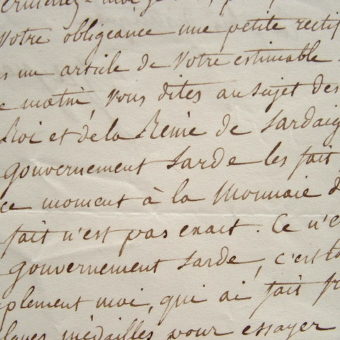 votre obligeance une petite rectif
un article de votre estimable
matin, vous dites au sujet des
Roi et de la Reine de Sardaig
gouvernement Sarde les fait
ce moment à la Monnaie d
fait n'est pas exact. Ce n'e
gouvernement Sarde, c'est to
plement moi, qui ai fait fr
médailles pour essayer